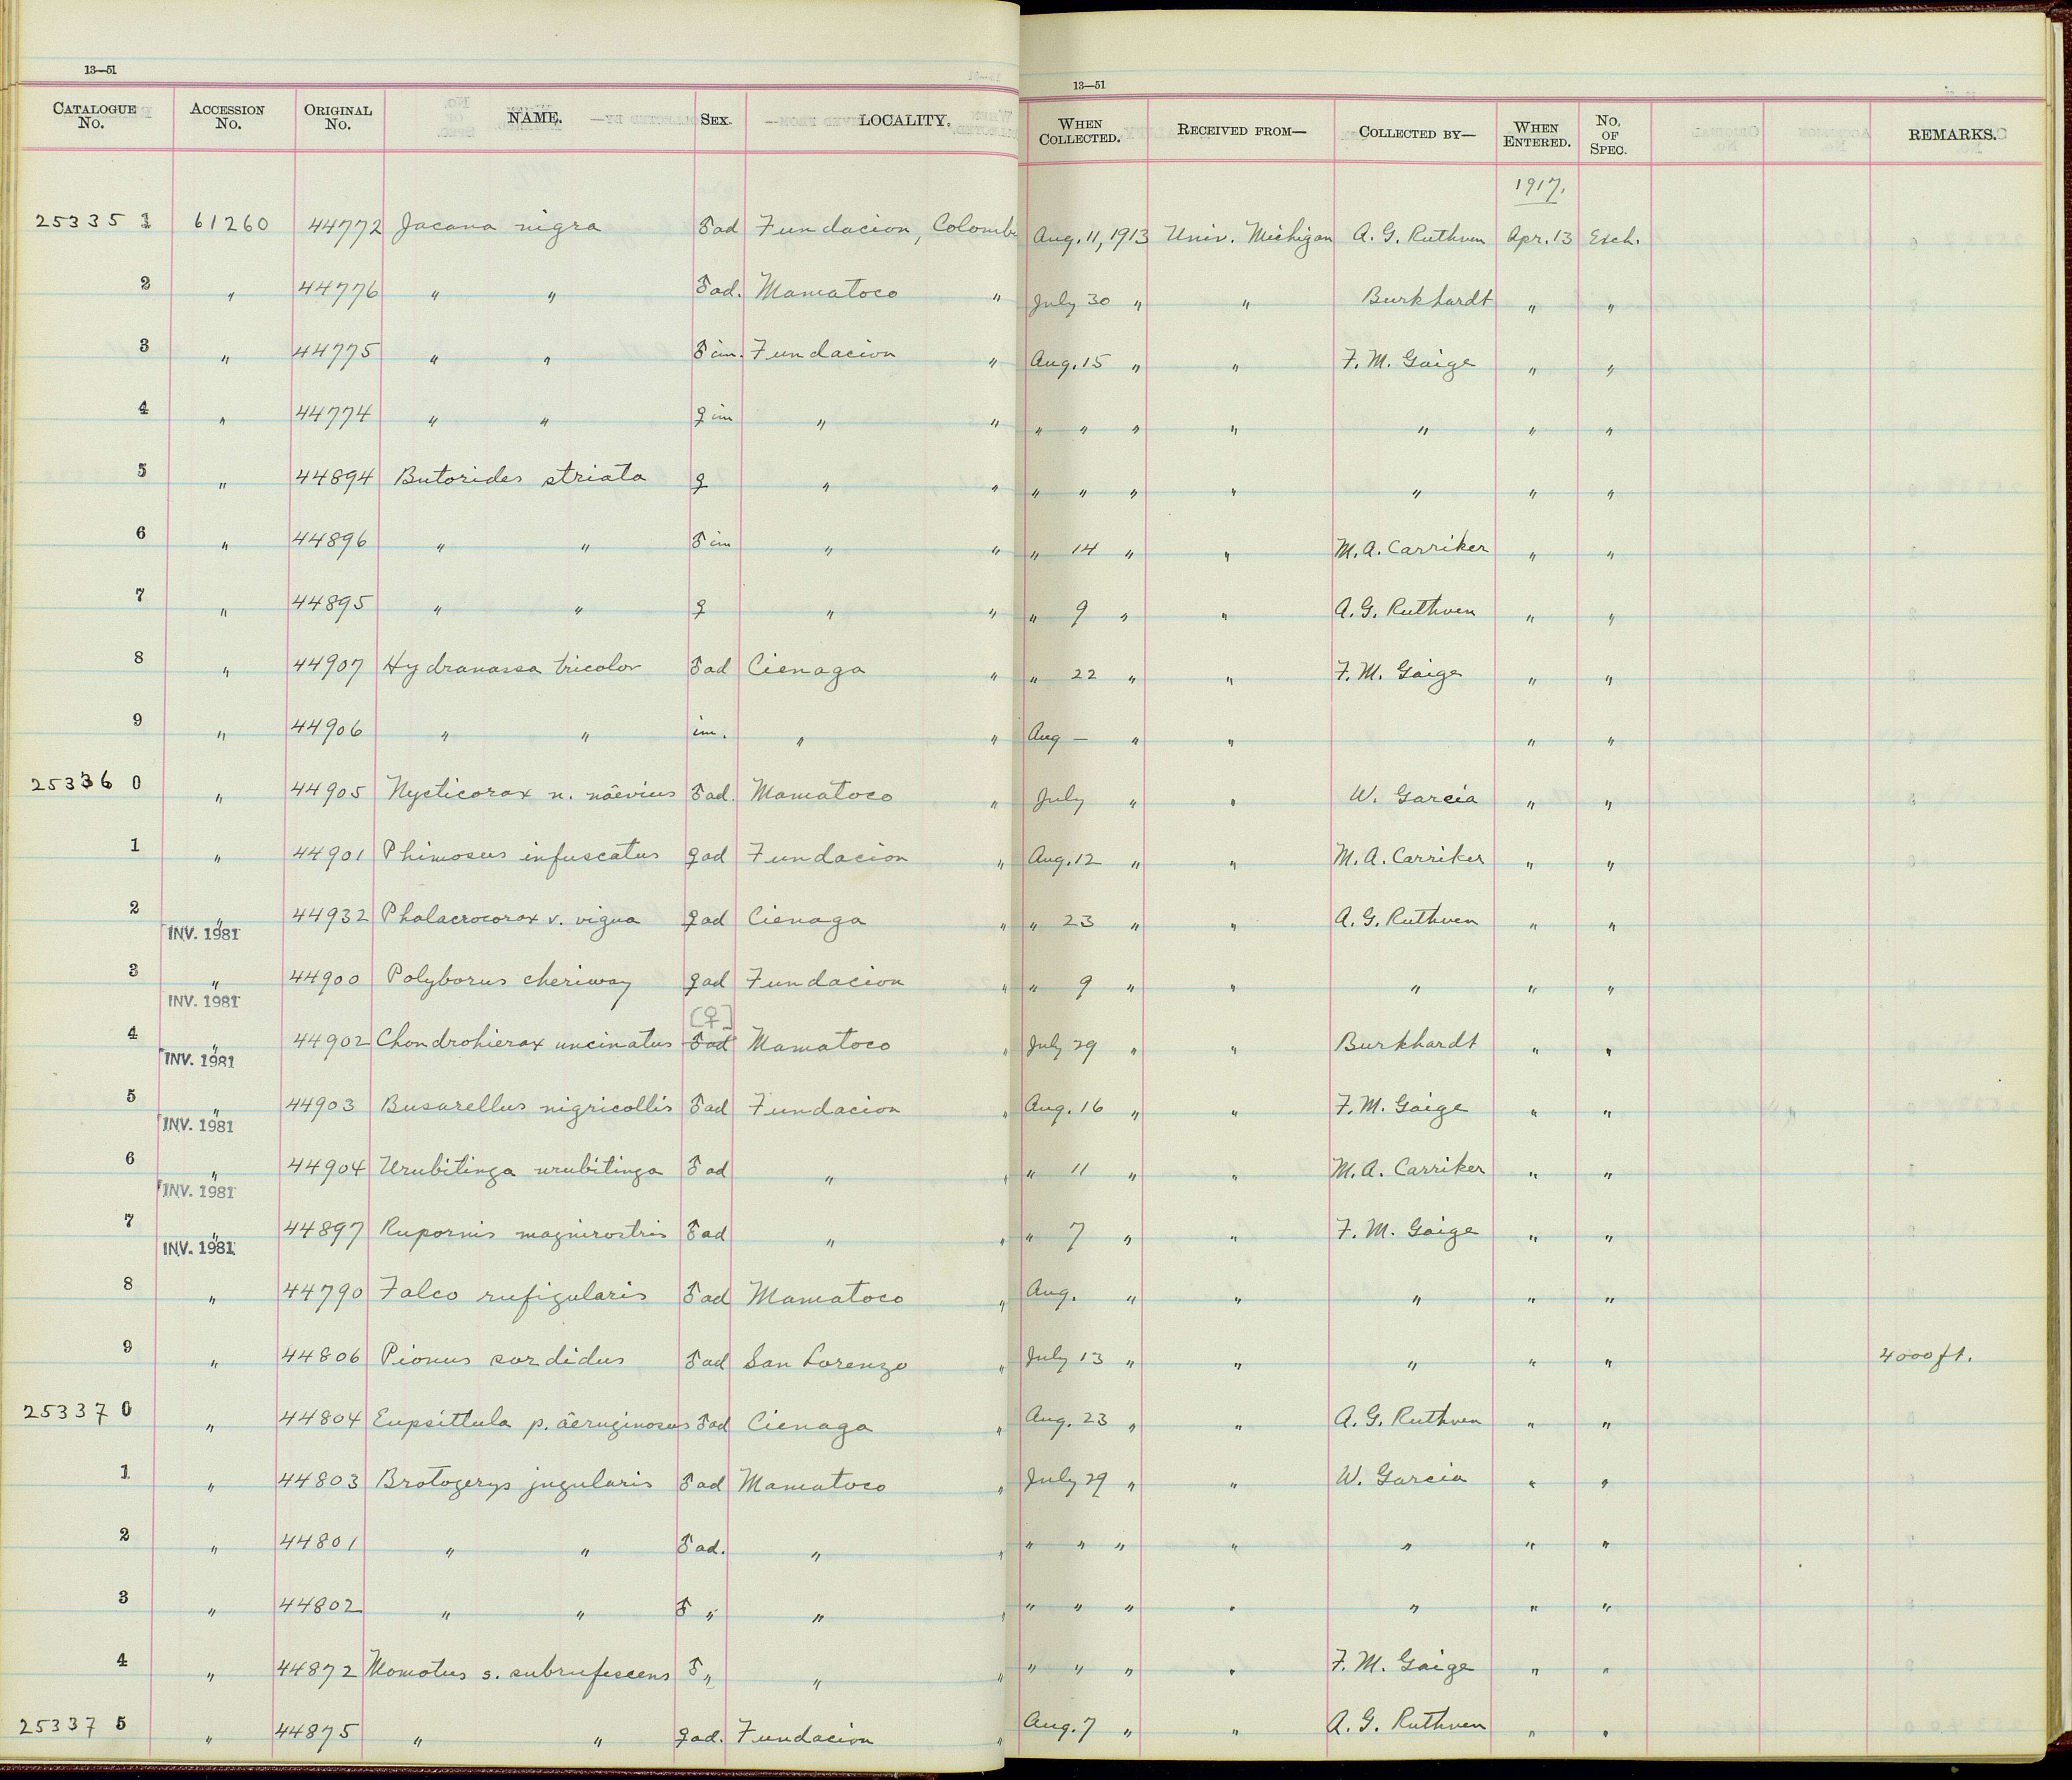 13—51
13—51
CATALOGUE No. ACCESSION No. ORIGINAL No. NAME. SEX. LOCALITY. WHEN COLLECTED. RECEIVED FROM— COLLECTED BY— WHEN ENTERED. No. OF SPEC. REMARKS.
1917.
253351 61260 44772 Jacana nigra ♂ ad Fundacion, Colombi Aug. 11, 1913 Univ. Michigan A. G. Ruthven Apr. 13 Exch.
2 " 44776 " " ♂ ad. Mamatoco " July 30 " " Burkhardt " "
3 " 44775 " " ♂ im. Fundacion " Aug. 15 " " F. M. Gaige " "
4 " 44774 " " ♀ im " " " " " " " " "
5 " 44894 Butorides striata ♀ " " " " " " " " "
6 " 44896 " " ♂ im " " " 14 " " M. A. Carriker " "
7 " 44895 " " ♀ " " " 9 " " A. G. Ruthven " "
8 " 44907 Hydranassa tricolor ♂ ad Cienaga " " 22 " " F. M. Gaige " "
9 " 44906 " " im. " " Aug — " " " "
253360 " 44905 Nycticorax n. nâevius ♂ ad. Mamatoco " July " " W. Garcia " "
1 " 44901 Phimosus infuscatus ♀ ad Fundacion " Aug. 12 " " M. A. Carriker " "
2 " INV. 1981 44932 Phalacrocorax v. vigua ♀ ad Cienaga " " 23 " " A. G. Ruthven " "
3 " INV. 1981 44900 Polyborus cheriway ♀ ad Fundacion " " 9 " " " " "
[♀]
4 " INV. 1981 44902 Chondrohierax uncinatus ♂ ad Mamatoco " July 29 " " Burkhardt " "
5 " INV. 1981 44903 Busarellus nigricollis ♂ ad Fundacion " Aug. 16 " " F. M. Gaige " "
6 " INV. 1981 44904 Urubitinga urubitinga ♂ ad " " " 11 " " M. A. Carriker " "
7 " INV. 1981 44897 Rupornis magnirostris ♂ ad " " " 7 " " F. M. Gaige " "
8 " 44790 Falco rufigularis ♂ ad Mamatoco " Aug. " " " " "
9 " 44806 Pionus sordidus ♂ ad San Lorenzo " July 13 " " " " " 4000 ft.
253370 " 44804 Eupsittula p. âeruginosus ♂ ad Cienaga " Aug. 23 " " A. G. Ruthven " "
1 " 44803 Brotogerys jugularis ♂ ad Mamatoco " July 29 " " W. Garcia " "
2 " 44801 " " ♂ ad. " " " " " " " " "
3 " 44802 " " ♂ " " " " " " " " " "
4 " 44872 Momotus s. subrufescens ♂ " " " " " " " F. M. Gaige " "
253375 " 44875 " " ♀ ad. Fundacion " Aug. 7 " " A. G. Ruthven " "